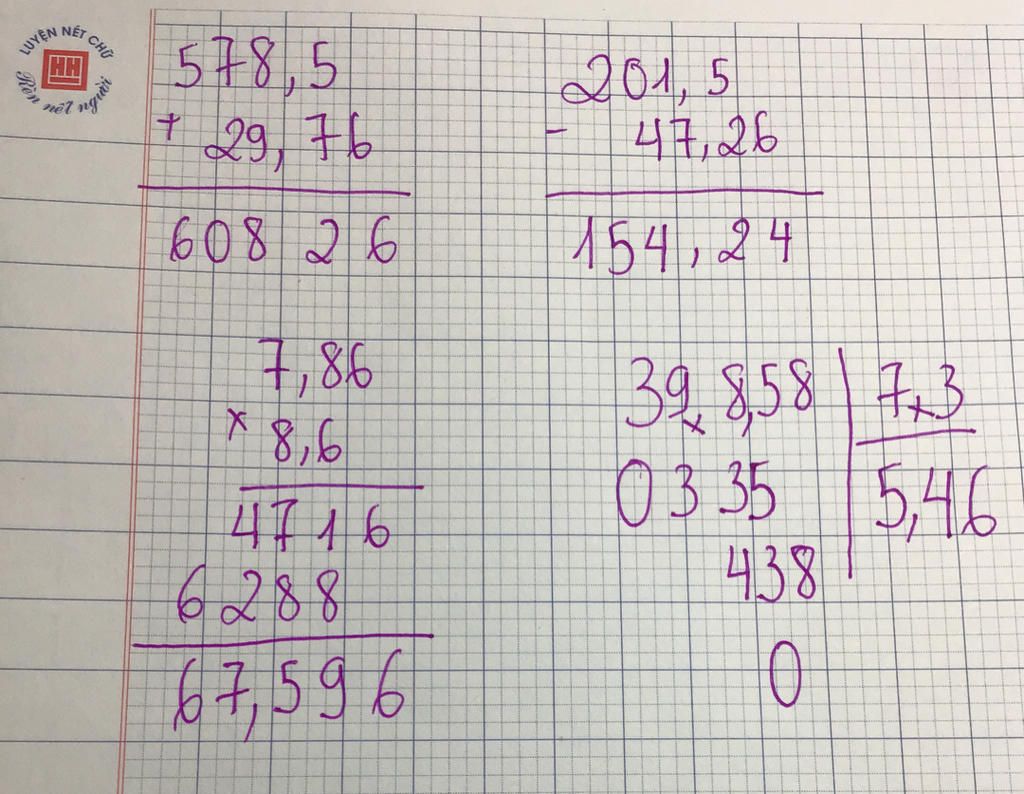 LUYỆN NÉT CHỮ
HH
Rèn nét người
578,5
+ 29,76
608 26
201,5
- 47,26
154,24
7,86
x 8,6
4716
6288
67,596
39,8,58 7,3
0335 5,46
438
0